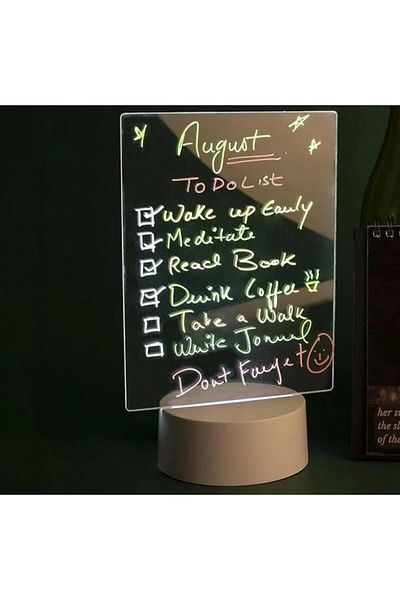 August
To Do List
Wake up Early
Meditate
Read Book
Drink Coffee
Take a Walk
Write Jornnal
Dont Forget
her
the sl
of the